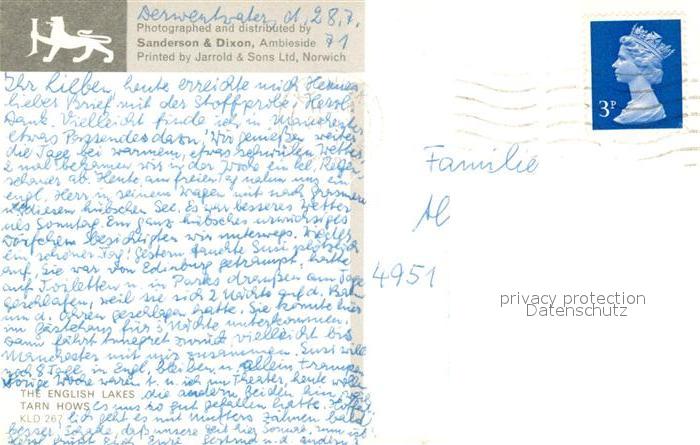 Derwentwater, d. 28.7.
71
Photographed and distributed by
Sanderson & Dixon, Ambleside
Printed by Jarrold & Sons Ltd, Norwich
3P
Ihr Lieben, heute erreichte mich Hennas
lieber Brief mit der Stoffprobe. Herzl.
Dank. Vielleicht finde ich in Manchester
etwas Passendes dazu. Wir genießen weiter
die Tage bei warmem, etwas schwülen Wetter.
2 mal bekamen wir in der Woche ein kl. Regen-
schauer ab. Heute am freien Tag nahm uns ein
engl. Herr in seinem Wagen mit nach Grasmere
diesem hübschen See. Es war besseres Wetter
als Sonntag. Ein ganz hübsches
Dörfchen besichtigten wir unterwegs. Wieder
ein schöner Tag! Gestern tauchte Susi plötzlich
auf, Sie war von Edinburg getrampt, hatte
auf Toiletten u. in Parks draußen am Tage
geschlafen, weil sie sich 2 Nächte auf d. Bahn
um d. Ohren geschlagen hatte. Sie konnte hier
im Gästehaus für 3 Nächte unterkommen.
Dann fährt zurück, vielleicht bis
Manchester mit mir zusammen. Susi will
noch 8 Tage in Engl. bleiben u. allein trampen
Vorige Woche waren t. u. ich im Theater, heute wollen
die andern beiden hin,
es uns so gut gefallen hatte.
geht es mit Mutters bald
besser! Schade, daß unsere Zeit hier
Euch Eure u. d. andern
Familie
4951
privacy protection
Datenschutz
THE ENGLISH LAKES
TARN HOWS
KLD 267